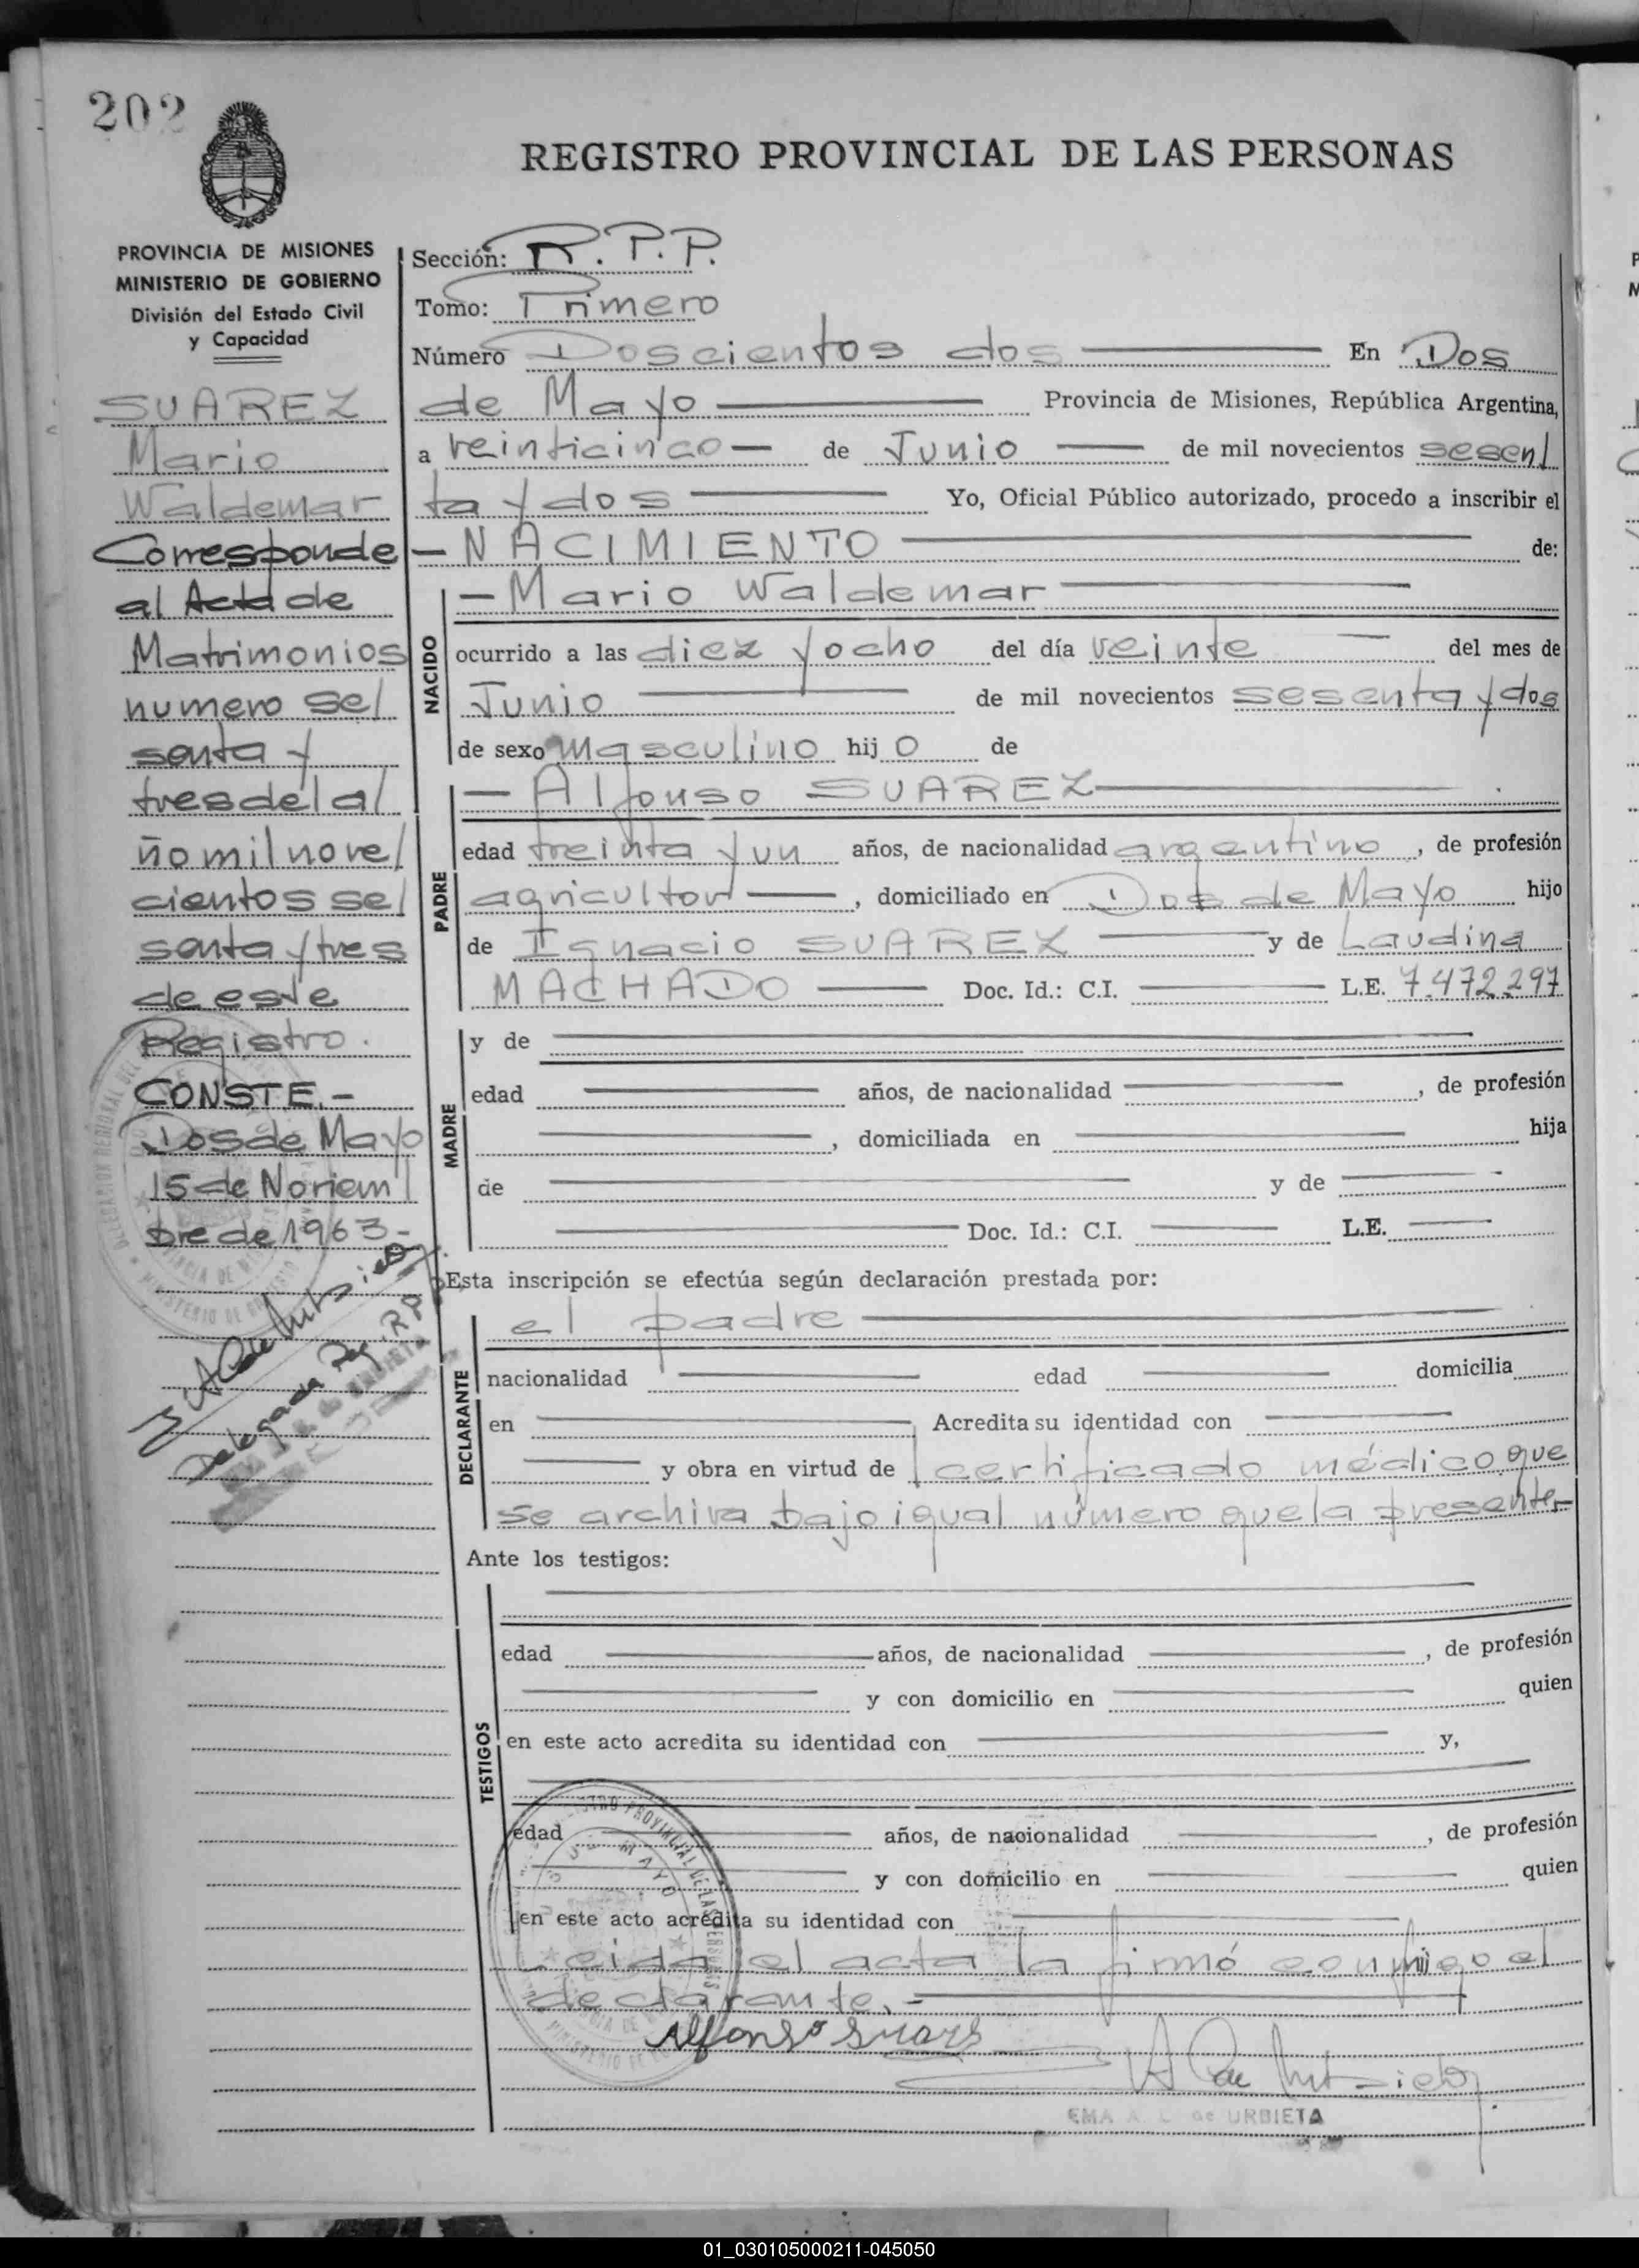 202
REGISTRO PROVINCIAL DE LAS PERSONAS
PROVINCIA DE MISIONES
MINISTERIO DE GOBIERNO
División del Estado Civil
y Capacidad
SUAREZ
Mario
Waldemar
Corresponde
al Acta de
Matrimonios
numero se/
senta y
tres del a/
ño mil nove/
cientos se/
senta y tres
de este
Registro.
CONSTE.-
Dos de Mayo
15 de Noviem/
bre de 1963-
Delegada Reg. R.P.P.
Sección: R.P.P.
Tomo: Primero
Número Doscientos dos En Dos
de Mayo Provincia de Misiones, República Argentina,
a veinticinco — de Junio de mil novecientos sesen/
ta y dos Yo, Oficial Público autorizado, procedo a inscribir el
— NACIMIENTO de:
NACIDO
— Mario Waldemar
ocurrido a las diez y ocho del día veinte del mes de
Junio de mil novecientos sesenta y dos
de sexo masculino hijo de
PADRE
— Alfonso SUAREZ
edad treinta y un años, de nacionalidad argentino, de profesión
agricultor, domiciliado en Dos de Mayo hijo
de Ignacio SUAREZ y de Laudina
MACHADO Doc. Id.: C.I. L.E. 7.472.297
MADRE
y de
edad años, de nacionalidad , de profesión
, domiciliada en hija
de y de
Doc. Id.: C.I. L.E.
Esta inscripción se efectúa según declaración prestada por:
DECLARANTE
el padre
nacionalidad edad domicilia
en Acredita su identidad con
y obra en virtud de certificado médico que
se archiva bajo igual número que la presente-
Ante los testigos:
TESTIGOS
edad años, de nacionalidad , de profesión
y con domicilio en quien
en este acto acredita su identidad con y,
edad años, de nacionalidad , de profesión
y con domicilio en quien
en este acto acredita su identidad con
Leida el acta la firmó conmigo el
declarante.-
Alfonso Suarez
EMA A. L. de URBIETA
01_030105000211-045050